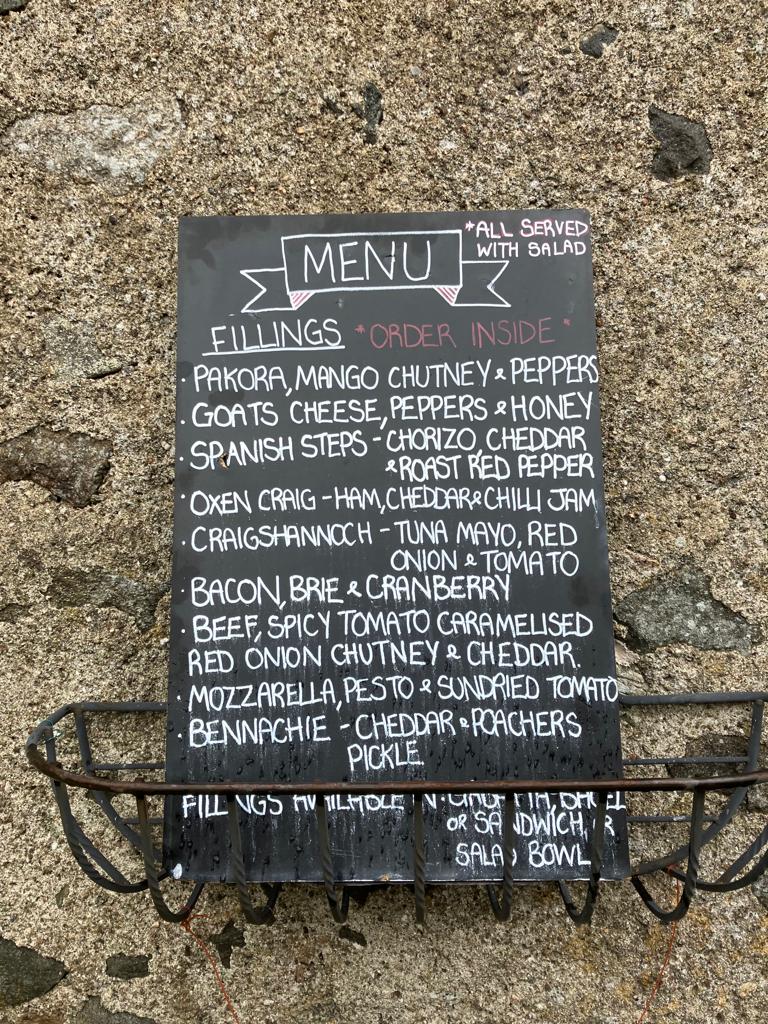 *ALL SERVED
WITH SALAD
MENU
FILLINGS *ORDER INSIDE*
· PAKORA, MANGO CHUTNEY & PEPPERS
· GOATS CHEESE, PEPPERS & HONEY
· SPANISH STEPS - CHORIZO, CHEDDAR
& ROAST RED PEPPER
· OXEN CRAIG - HAM, CHEDDAR & CHILLI JAM
· CRAIGSHANNOCH - TUNA MAYO, RED
ONION & TOMATO
· BACON, BRIE & CRANBERRY
· BEEF, SPICY TOMATO CARAMELISED
RED ONION CHUTNEY & CHEDDAR.
· MOZZARELLA, PESTO & SUNDRIED TOMATO
· BENNACHIE - CHEDDAR & POACHERS
PICKLE.
FILLINGS AVAILABLE IN: CIABATTA, BAGEL
OR SANDWICH, OR
SALAD BOWL